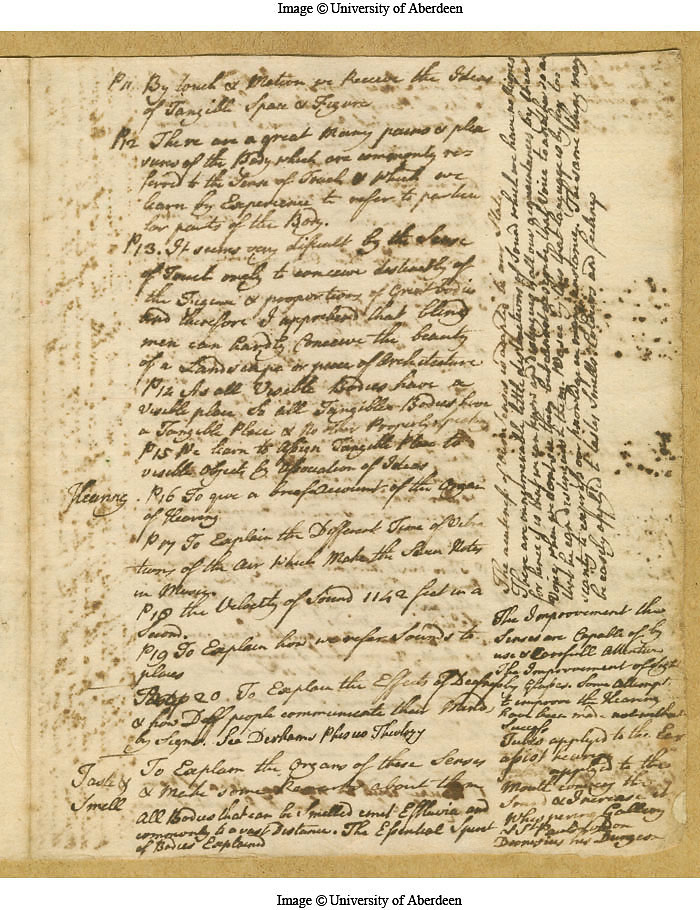 Image © University of Aberdeen
P 11 By touch & Motion we Receive the Ideas
of Tangible Space & Figure
P12 There are a great Many pains & plea
sures of the Body which are commonly re=
ferred to the Sense of Touch & which we
learn by Experience to refer to particu
lar parts of the Body.
P13. It seems very dificult by the Sense
of Touch only to conceive distinctly of
the Figure & proportions of Great Bodies
and therefore I apprehend that blind
men can hardly Conceive the beauty
of a Landscape or piece of Architecture
P14 As all Visible Bodies have a
visible place So all Tangible Bodies have
a Tangible Place & No other Property
P15 We learn to Assign Tangible Place to
visible Objects by Association of Ideas
Hearing. P16 To give a brief account of the Organ
of Hearing
P 17 To Explain the Different Time of Vib
rations of the Air Which Make the Seven Notes
in Music.
P18 the Velocity of Sound 1142 feet in a
Second.
P19 To Explain how we refer Sounds to
places
20. To Explain the Effects of Deafness
& how Deff people communicate their Minds
by Signs. See Derhams Phisico Theology
Taste &
Smell
To Explain the Organs of these Senses
& Make some Remarks about them
All Bodies that can be Smelled emit Effluvia and
commonly to a vast Distance. The Essential Spirit
of Bodies Explained
The acuteness of these senses
There are innumerable little distinctions of Sound which we have no Signs
be easily applyed to tastes Smells Colours and feelings
The Improvement the
Senses are Capable of by
use & Carefull Attention
The Improvement of Sight
by Glasses. Some Attempts
to improve the Hearing
have been made not without
Success
Tubes applyed to the Ear
assist hearing
applyed to the
Mouth
& Increase it
Whispering Gallery
St Pauls London
Dionisius his Dungeon
Image © University of Aberdeen